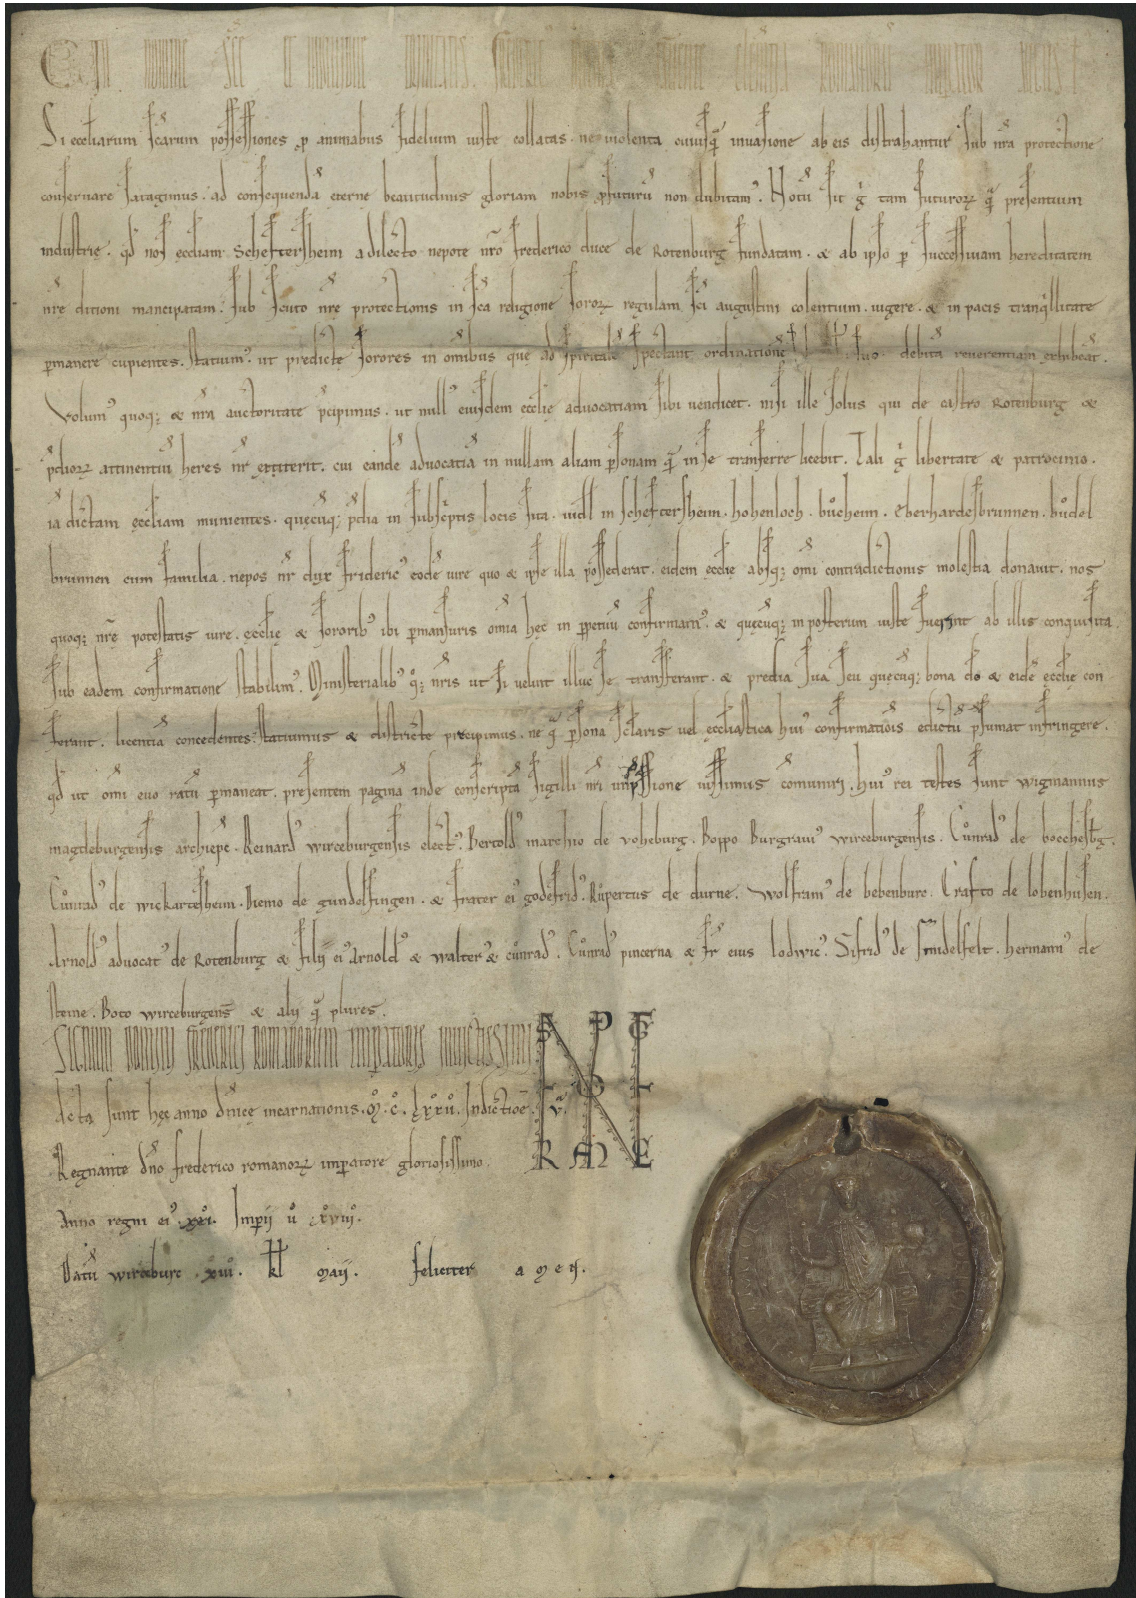 C. In nomine sc̄e et individue trinitatis. Frederic' divina favente clementia romanorū imperator augustus
Si eccl̄iarum sc̄arum possessiones p animabus fidelium iuste collatas. ne violenta cuiusq̄ invasione ab eis distrahantur sub nr̄a protectione
conservare satagimus. ad consequendā eterne beatitudinis gloriam nobis pfuturū non dubitam'. Notū sit ḡ tam futuroꝝ q̄ presentium
industrię. qd̄ nos eccl̄iam Scheftersheim a dilecto nepote nr̄o frederico duce de Rotenburg fundatam. & ab ipso p successivam hereditatem
nr̄e ditioni mancipatam. sub scuto nr̄e protectionis in sc̄a religione soroꝝ regulam sc̄i augustini colentium. vigere. & in pacis tranq'llitate
pmanere cupientes. statuim'. ut predictę sorores in omibus que ad spiritale spectant ordinationē suo debitā reverentiam exhibeāt.
Volum' quoq; & nr̄a auctoritate p̄cipimus. ut null' eiusdem ecclię advocatiam sibi vendicet. nisi ille solus qui de castro Rotenburg &
p̄dioꝝ attinentiū heres nr̄ extiterit. cui eandē advocatiā in nullam aliam psonam q̄ in se transferre licebit. Tali g̊ libertate & patrocinio.
iā dictam eccl̄iam munientes. quęcūq; p̄dia in subsc̄ptis locis sita. vidl in scheftersheim. hohenloch. bůcheim. Eberhardesbrunnen. bůdel
brunnen cum familia. nepos nr̄ dux frideric' eodē iure quo & ipse illa possederat. eidem ecclię absq; om̄i contradictionis molestia donavit. nos
quoq; nr̄ę potestatis iure. ecclię & sororib' ibi pmansuris om̄ia hęc in ppetuū confirmam'. & quęcūq; in posterum iuste fuerint ab illis conquisita.
sub eadem confirmatione stabilim'. Ministerialib' q̊; nr̄is ut si velint illuc se transferant. & predia sua seu quęcūq; bona do & eidē ecclię con
ferant. licentiā concedentes. statuimus & districte precipimus. ne q̄ psona sc̄laris vel eccl̄iastica hui' confirmatiōis edictū p̄sumat infringere.
qd̄ ut om̄i evo ratū pmaneat. presentem paginā inde conscriptā sigilli nr̄i impssione iussimus cōmuniri. hui' rei testes sunt wigmannus
magdeburgensis archiepc̄. Reinard' wirceburgensis elect'. Bertold' marchio de voheburg. Boppo Burgravi' wirceburgensis. Cůnrad' de bocchesbg.
Cůnrad' de wickartesheim. Diemo de gundelfingen. & frater ei' godefrid'. Růpertus de durne. wolfram' de bebenburc. Crafto de lobenhusen.
Arnold' advocat' de Rotenburg & filij ei' Arnold' & walter' & cůnrad'. Cůnrad' pincerna & fr̄ eius lodwic'. Sifrid' de smidelfelt. hermann' de
steine. Boto wirceburgens̄ & alij q̄ plures.
Signum domini frederici romanorum imperatoris invictissimi
Acta sunt hęc anno dn̄icę incarnationis. M̊. c̊. lxxv̊. Indictiōe. v̄.
Regnante dn̄o frederico romanoꝝ imperatore gloriosissimo.
Anno regni ei'. xxi. Imperii v̊ xviii̊.
Datū wirceburc. xiii̊. kl maij. feliciter amen.